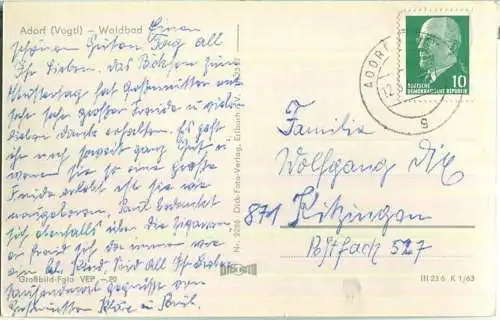 Adorf (Vogtl) – Waldbad Einen
schönen Guten Tag all
Ihr Lieben. Das Päckchen zum
Muttertag hat Großmutter mit
sehr sehr großer Freude u vielen
lieben Dank erhalten. Es geht
ihr noch soweit ganz gut u
wenn sie so eine große
Freude erlebt ist sie wie
neugeboren. Paul bedankt
sich ebenfalls über die Zigarren
er freut sich da immer wie
ein kl. Kind. Seid All Ihr Lieben
tausendmal gegrüßt von
Großmutter u Paul.
Großbild-Foto VEP –.20
Nr. 3285 Dick-Foto-Verlag, Erlbach
ADORF
12.
g
DEUTSCHE
DEMOKRATISCHE REPUBLIK
10
Familie
Wolfgang Dix
871 Kitzingen
Postfach 527
III 23 6 K 1/63